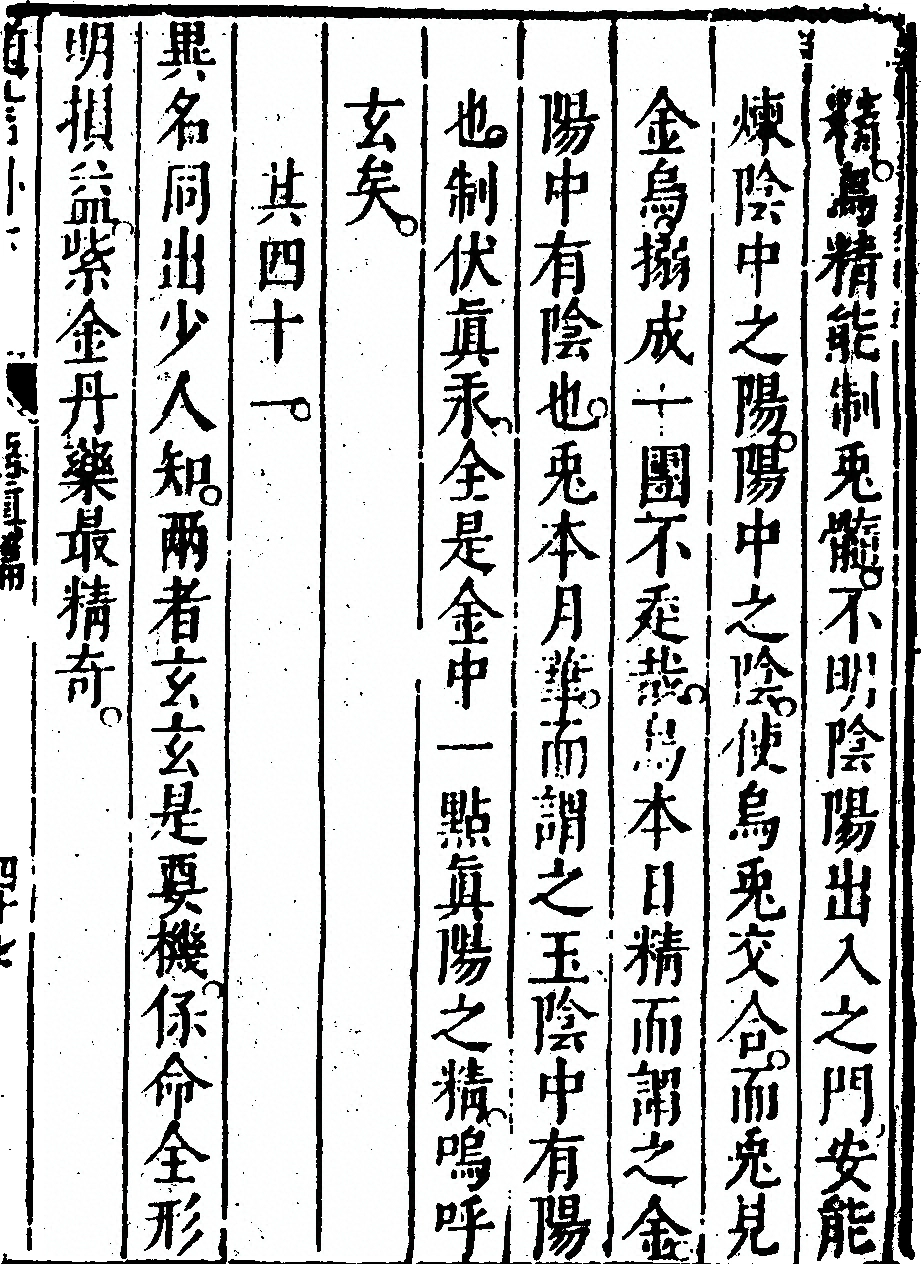 精烏精能制兎髓不明陰陽出入之門安能
煉陰中之陽陽中之陰使烏兎交合而兎見
金烏搦成一團不走哉烏本日精而謂之金
陽中有陰也兎本月華而謂之玉陰中有陽
也制伏眞汞全是金中一點眞陽之精嗚呼
玄矣
其四十一
異名同出少人知兩者玄玄是要機保命全形
明損益紫金丹藥最精奇